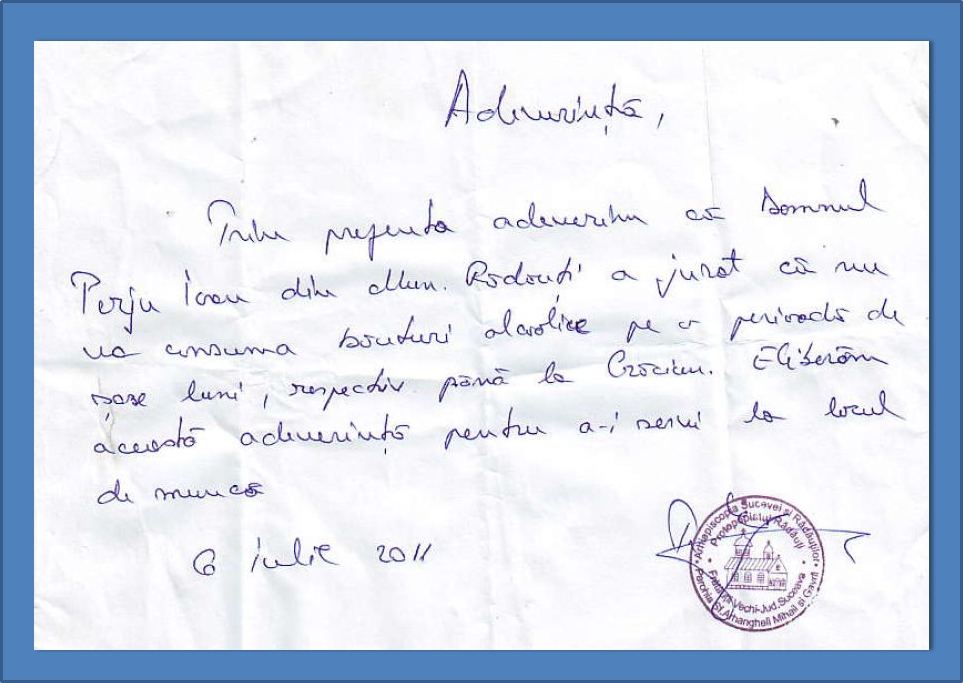 Adeverință,
Prin prezenta adeverim că Domnul
Perju Ioan din Mun. Rădăuți a jurat că nu
va consuma băuturi alcoolice pe o perioadă de
șase luni, respectiv până la Crăciun. Eliberăm
această adeverință pentru a-i servi la locul
de muncă
6 iulie 2011
Arhiepiscopia Sucevei și Rădăuților
Protopopiatul Rădăuți
Vechi-Jud. Suceava
Parohia Sf. Arhangheli Mihail și Gavril